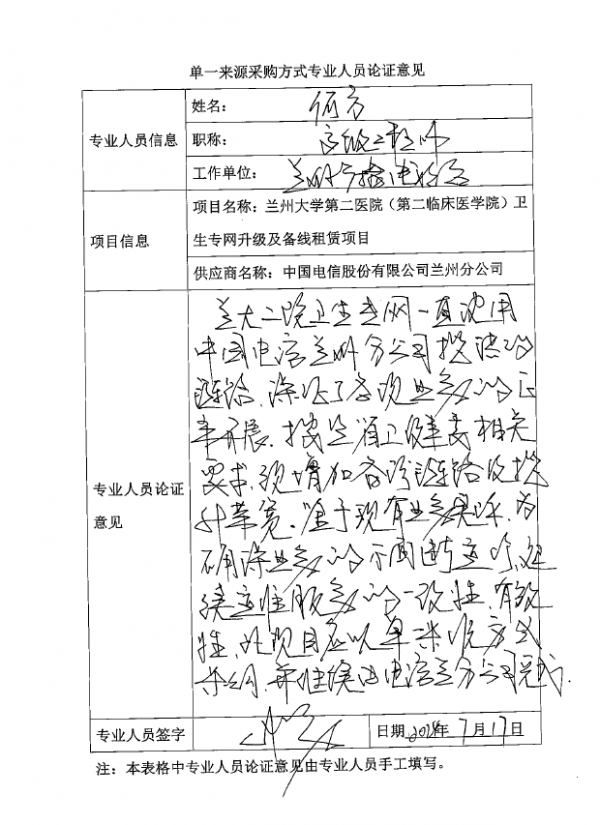 单一来源采购方式专业人员论证意见
专业人员信息
姓名：
职称：高级工程师
工作单位：兰州
项目信息
项目名称：兰州大学第二医院（第二临床医学院）卫
生专网升级及备线租赁项目
供应商名称：中国电信股份有限公司兰州分公司
专业人员论证
意见
兰大二院卫生专网一直使用
中国电信兰州分公司提供的
链路，保证了各项业务的正
常开展，按照省卫健委相关
要求，须增加备份链路及提
升带宽，鉴于现有业务，为
确保业务的不间断运行，延
续性服务的一致性、有效
性，此项目应以单一来源方式
采购，并继续由电信兰分公司完成.
专业人员签字
日期 2024年7月17日
注：本表格中专业人员论证意见由专业人员手工填写。